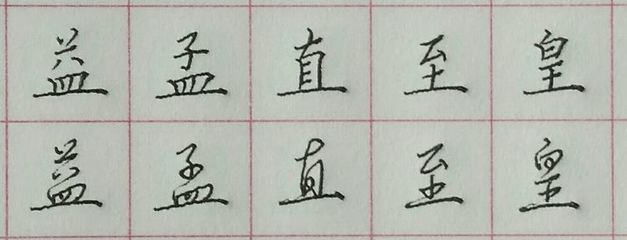 益孟直至皇
益孟直至皇